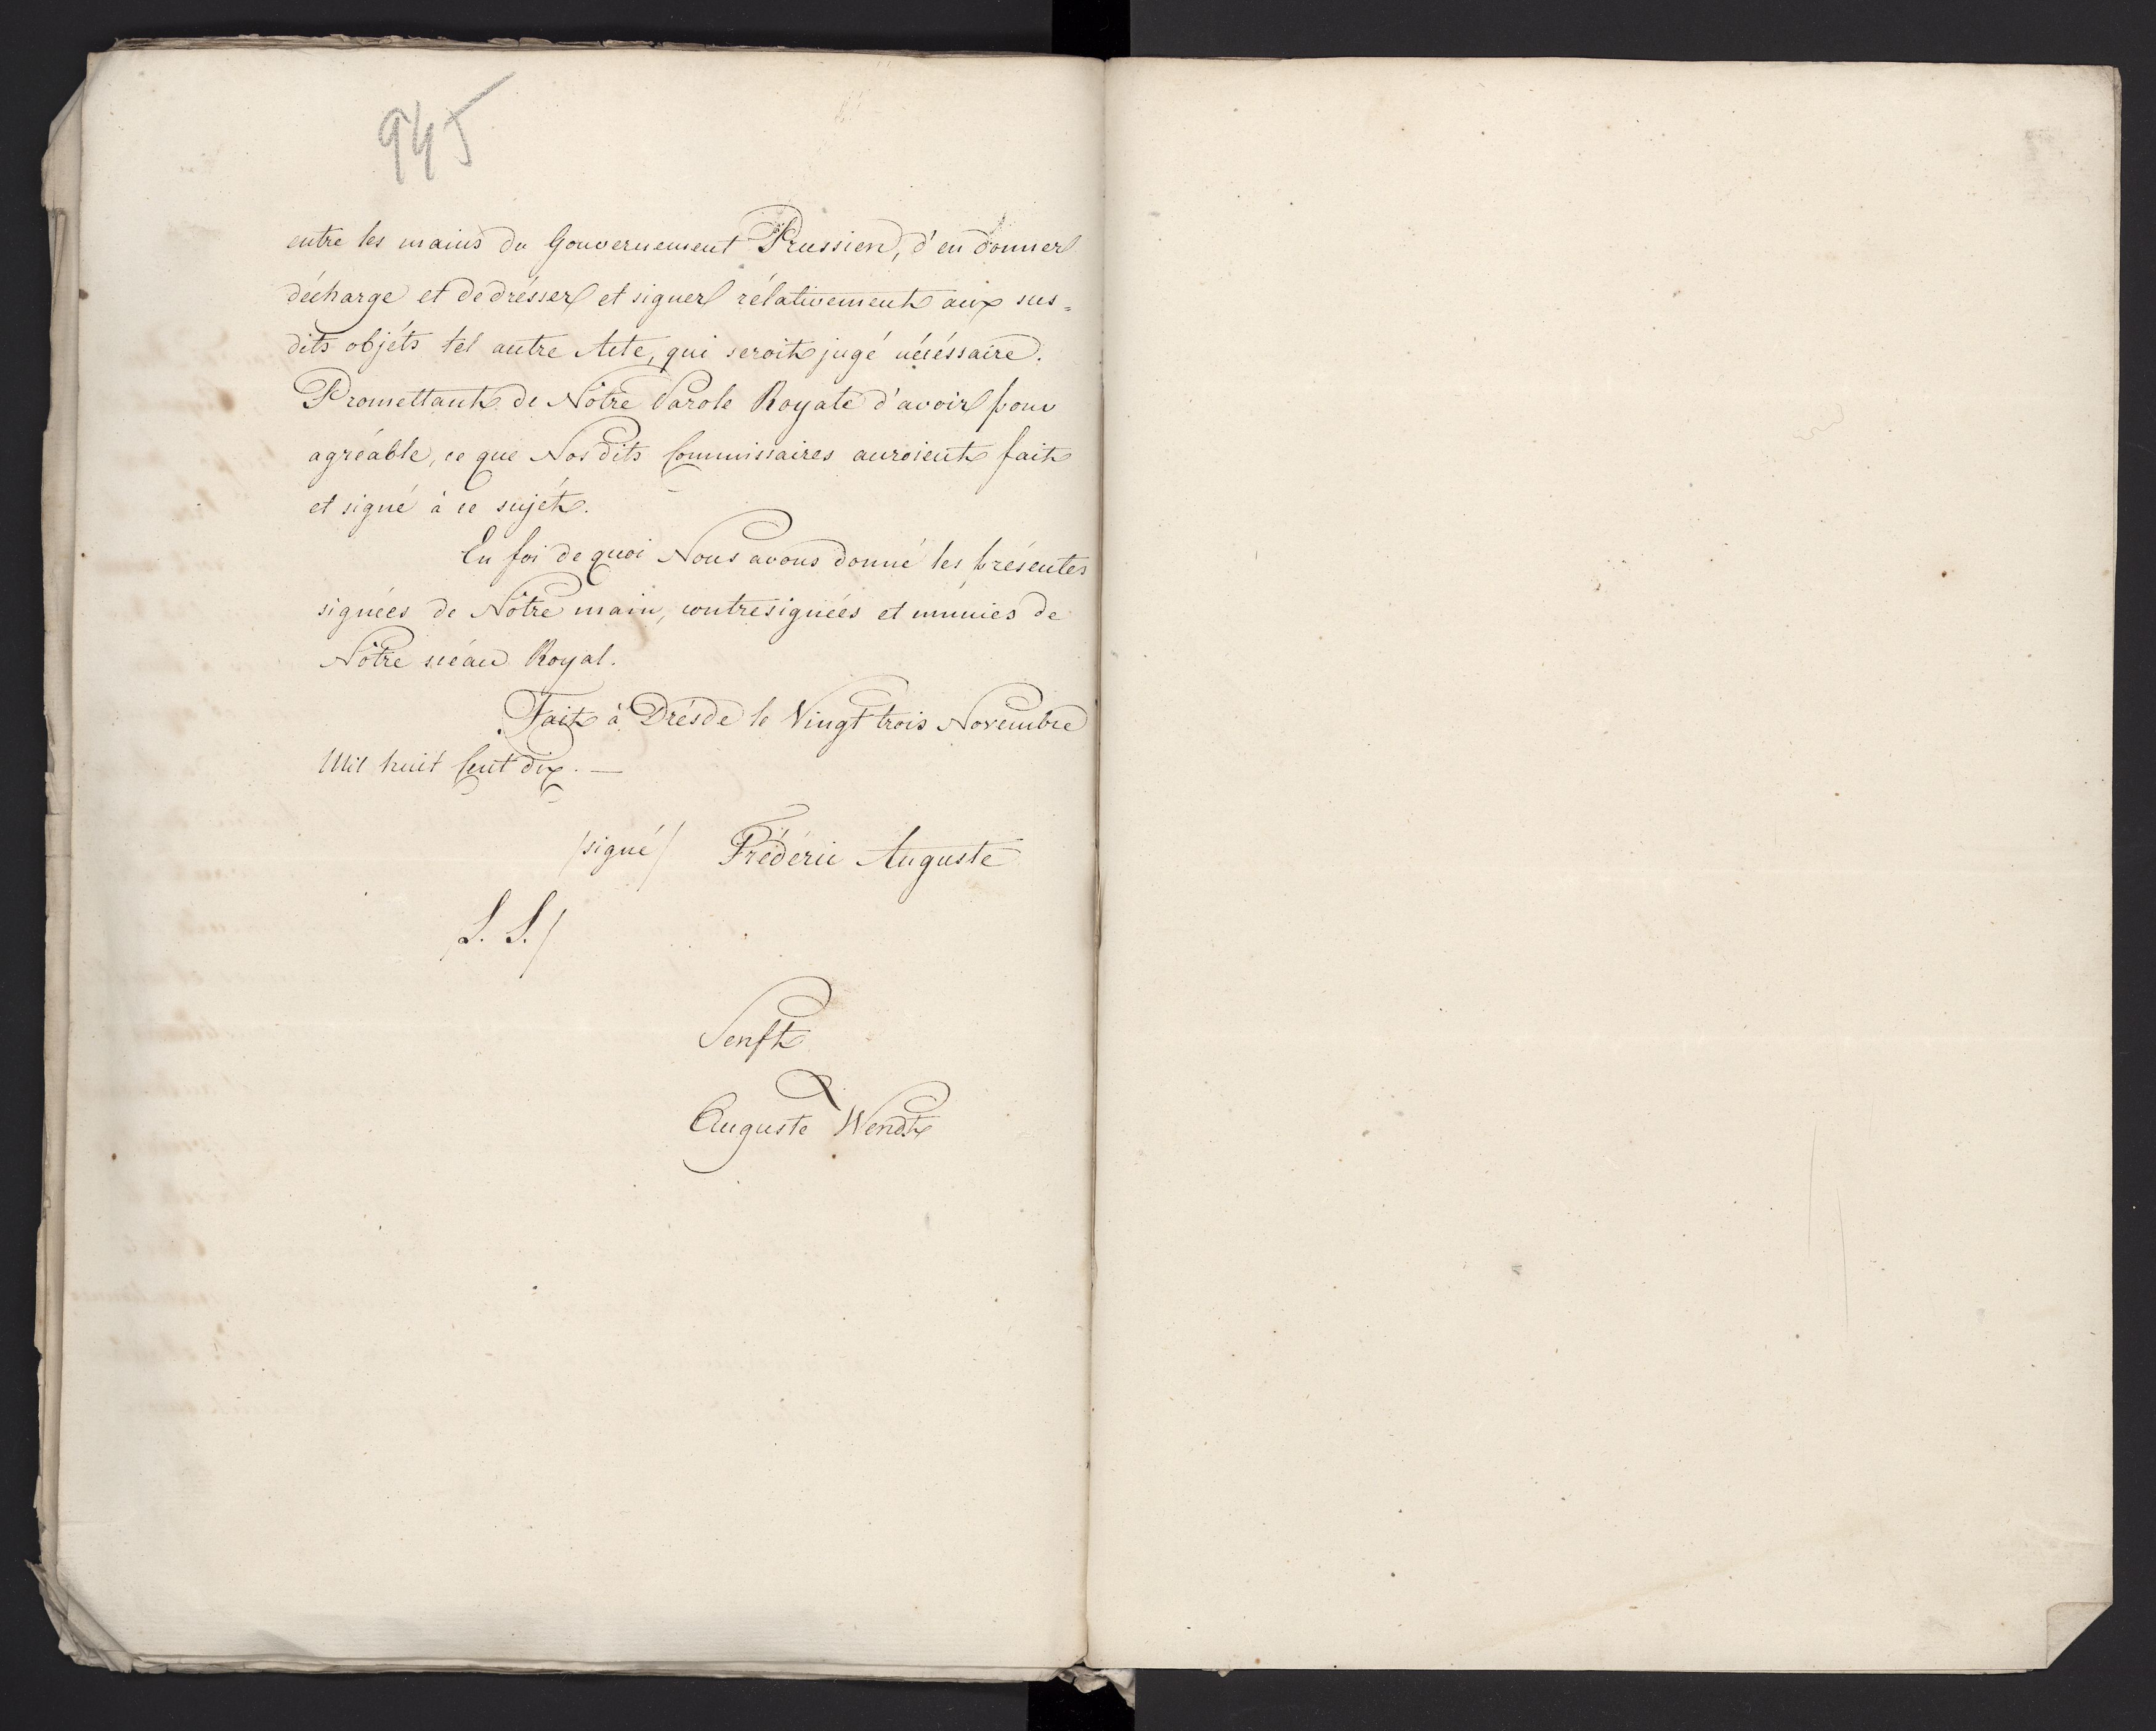 945
entre les mains du Gouvernement Prussien, d'en donner
décharge et de drésser et signer rélativement aux sus=
dits objéts tel autre Acte, qui seroit jugé nécéssaire.
Promettant de Nôtre Parole Royale d'avoir pour
agréable, ce que Nos dits Commissaires auroient fait
et signé à ce sujét.
En foi de quoi Nous avons donné les présentes
signées de Nôtre main, contresignées et munies de
Nôtre scéau Royal.
Fait à Drésde le Vingt trois Novembre
Mil huit Cent dix. —
/signé/ Fréderic Auguste
/L. S./
Senft
Auguste Wendt